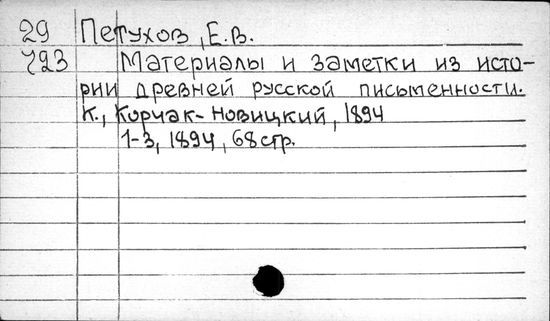 29 Петухов, Е.В.
723 Материалы и заметки из исто-
рии древней русской письменности.
К., Корчак-Новицкий, 1894
1-3, 1894, 68стр.